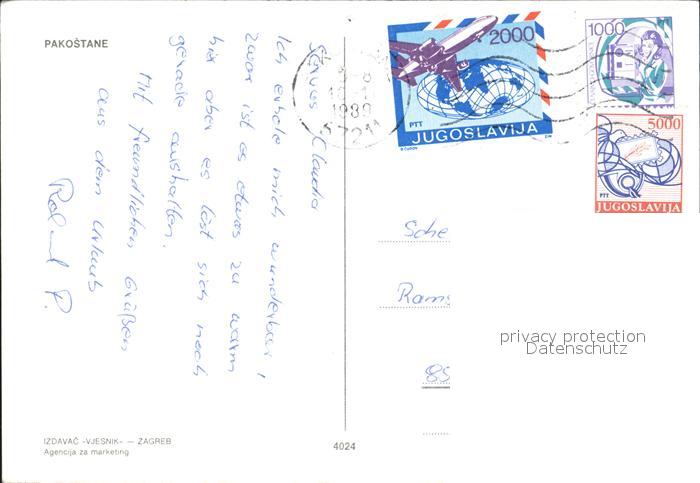 PAKOŠTANE
Servus Claudia
Ich erhole mich wunderbar,
zwar ist es etwas zu warm
hier aber es läst sich noch
gerade aushalten.
Mit freundlichen Grüßen
aus dem Urlaub
Roland P.
IZDAVAČ «VJESNIK» — ZAGREB
Agencija za marketing
4024
2000
PTT
JUGOSLAVIJA
1989
57211
1000
5000
PTT
JUGOSLAVIJA
Sche
Rams
85
privacy protection
Datenschutz